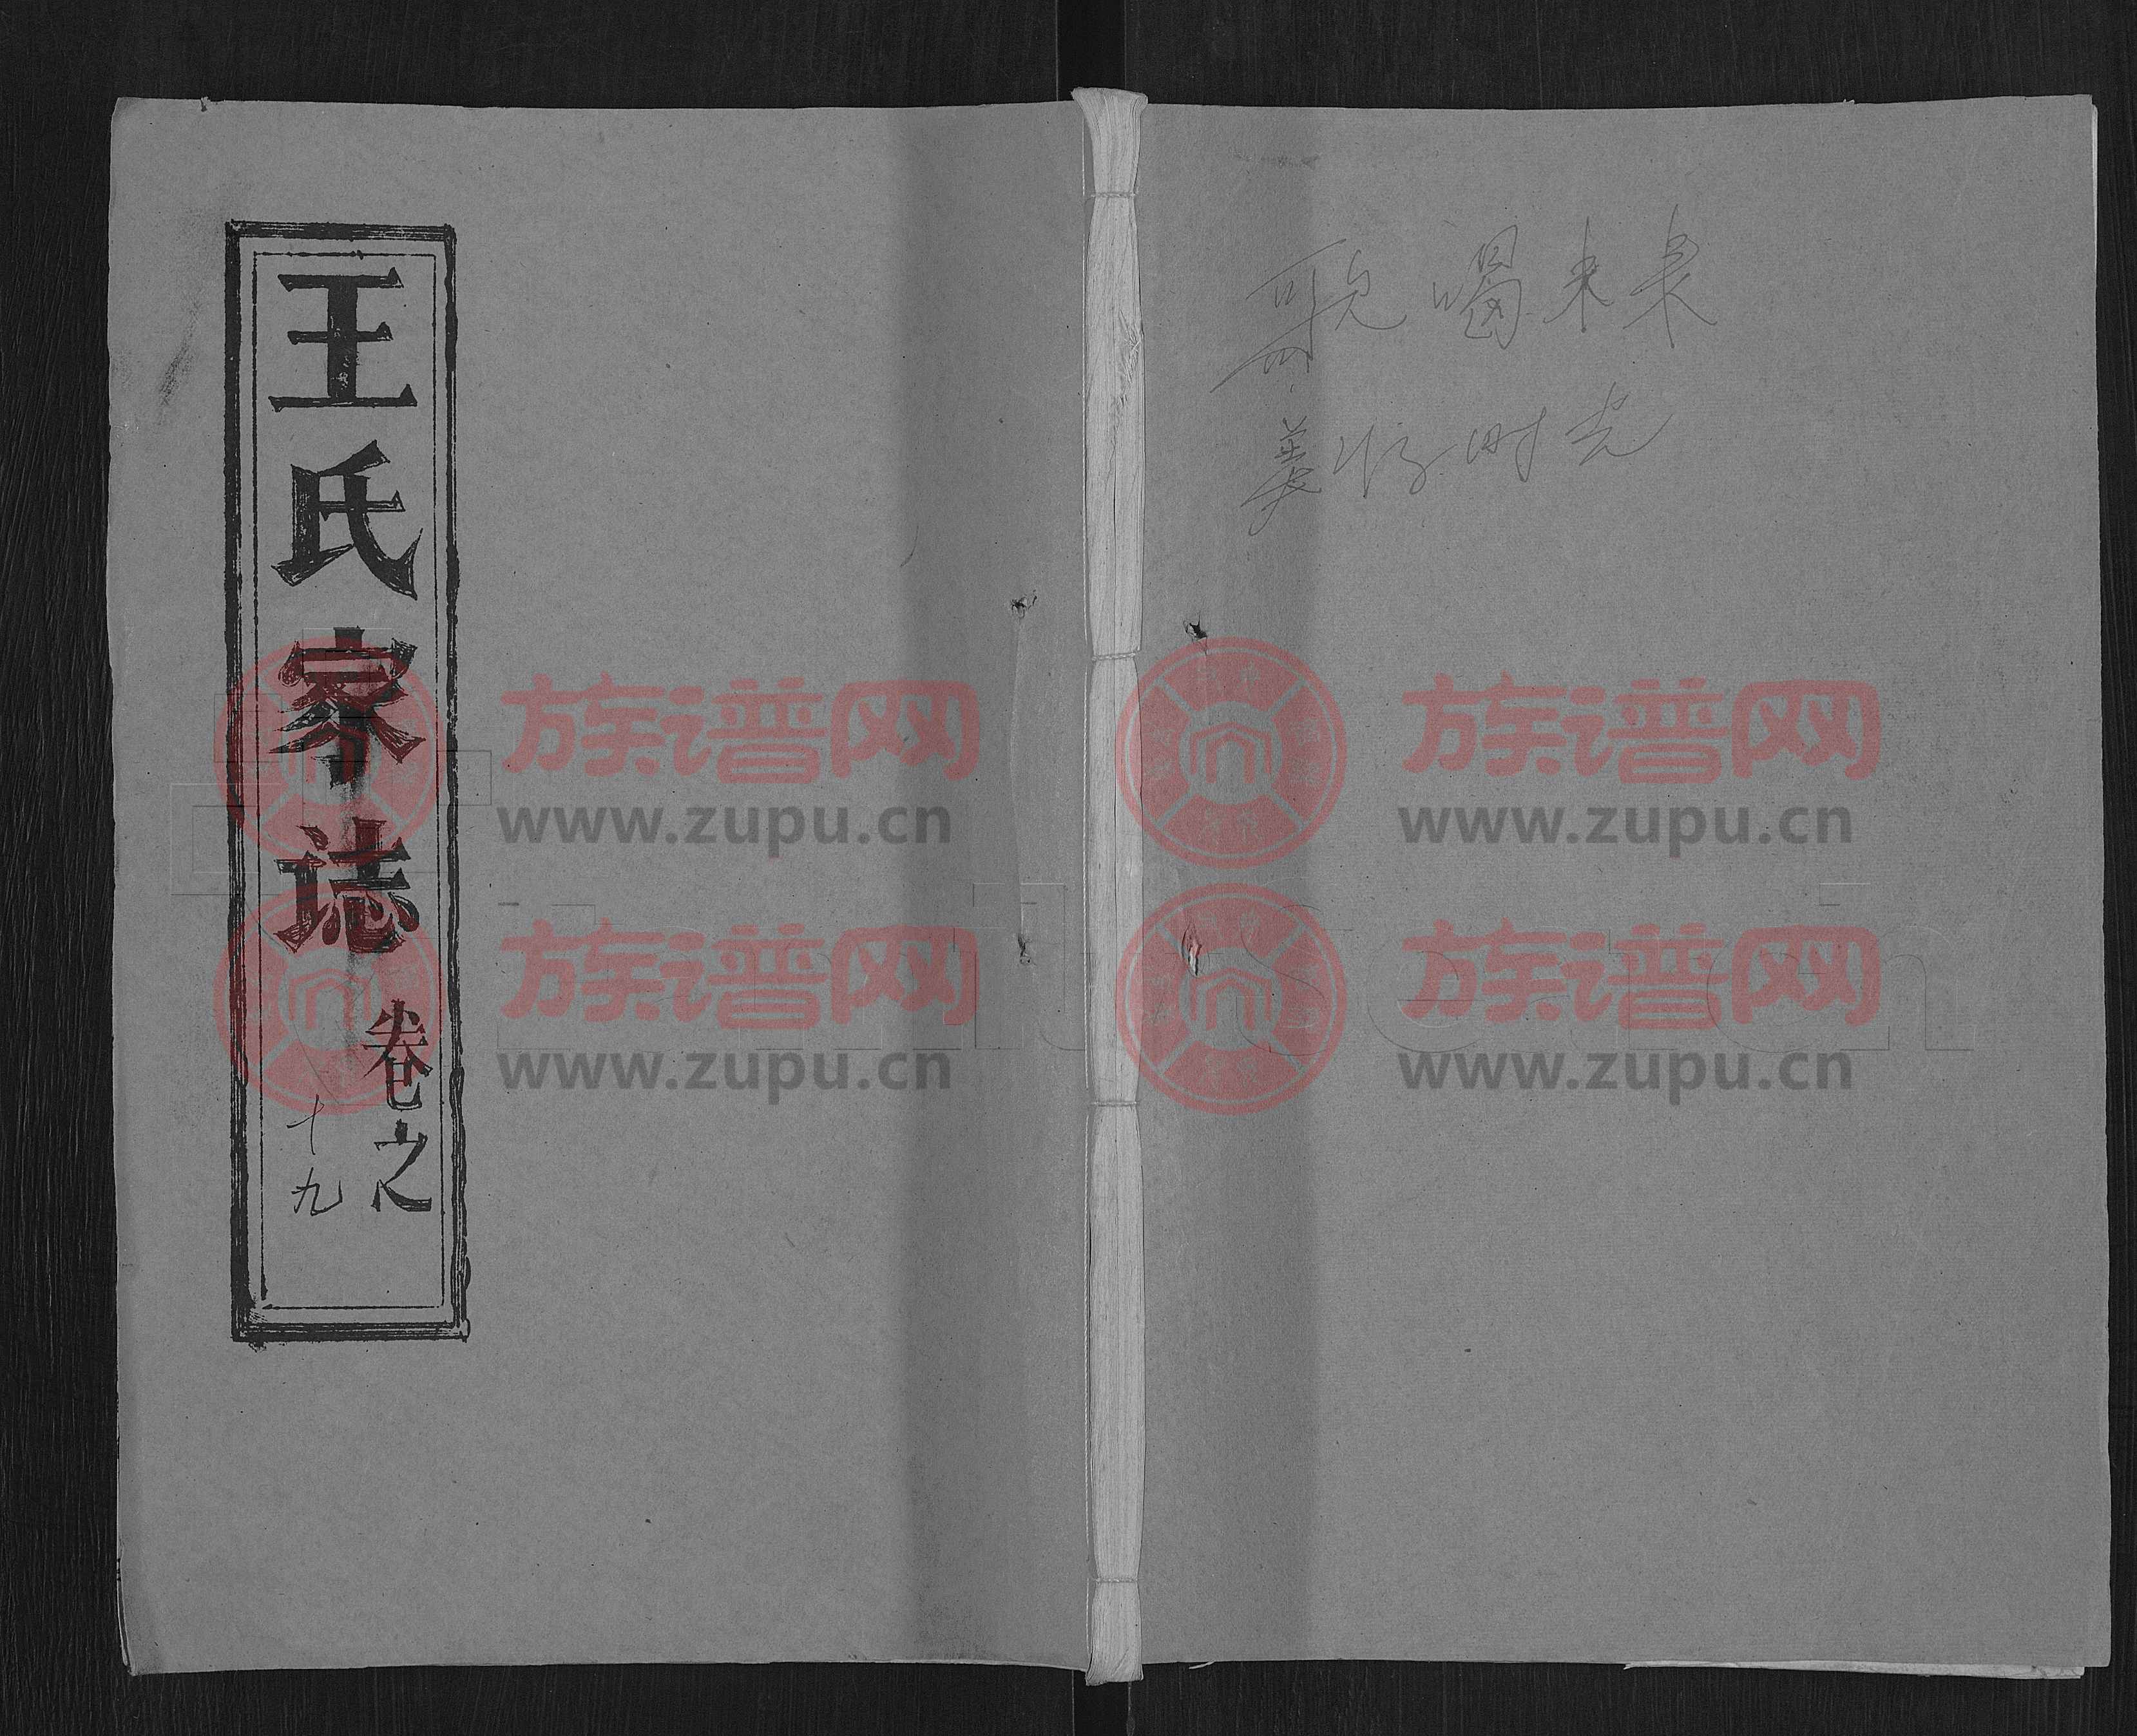 王氏家誌
卷之
十九
美好时光
族谱网
www.zupu.cn
族谱网
www.zupu.cn
族谱网
www.zupu.cn
族谱网
www.zupu.cn